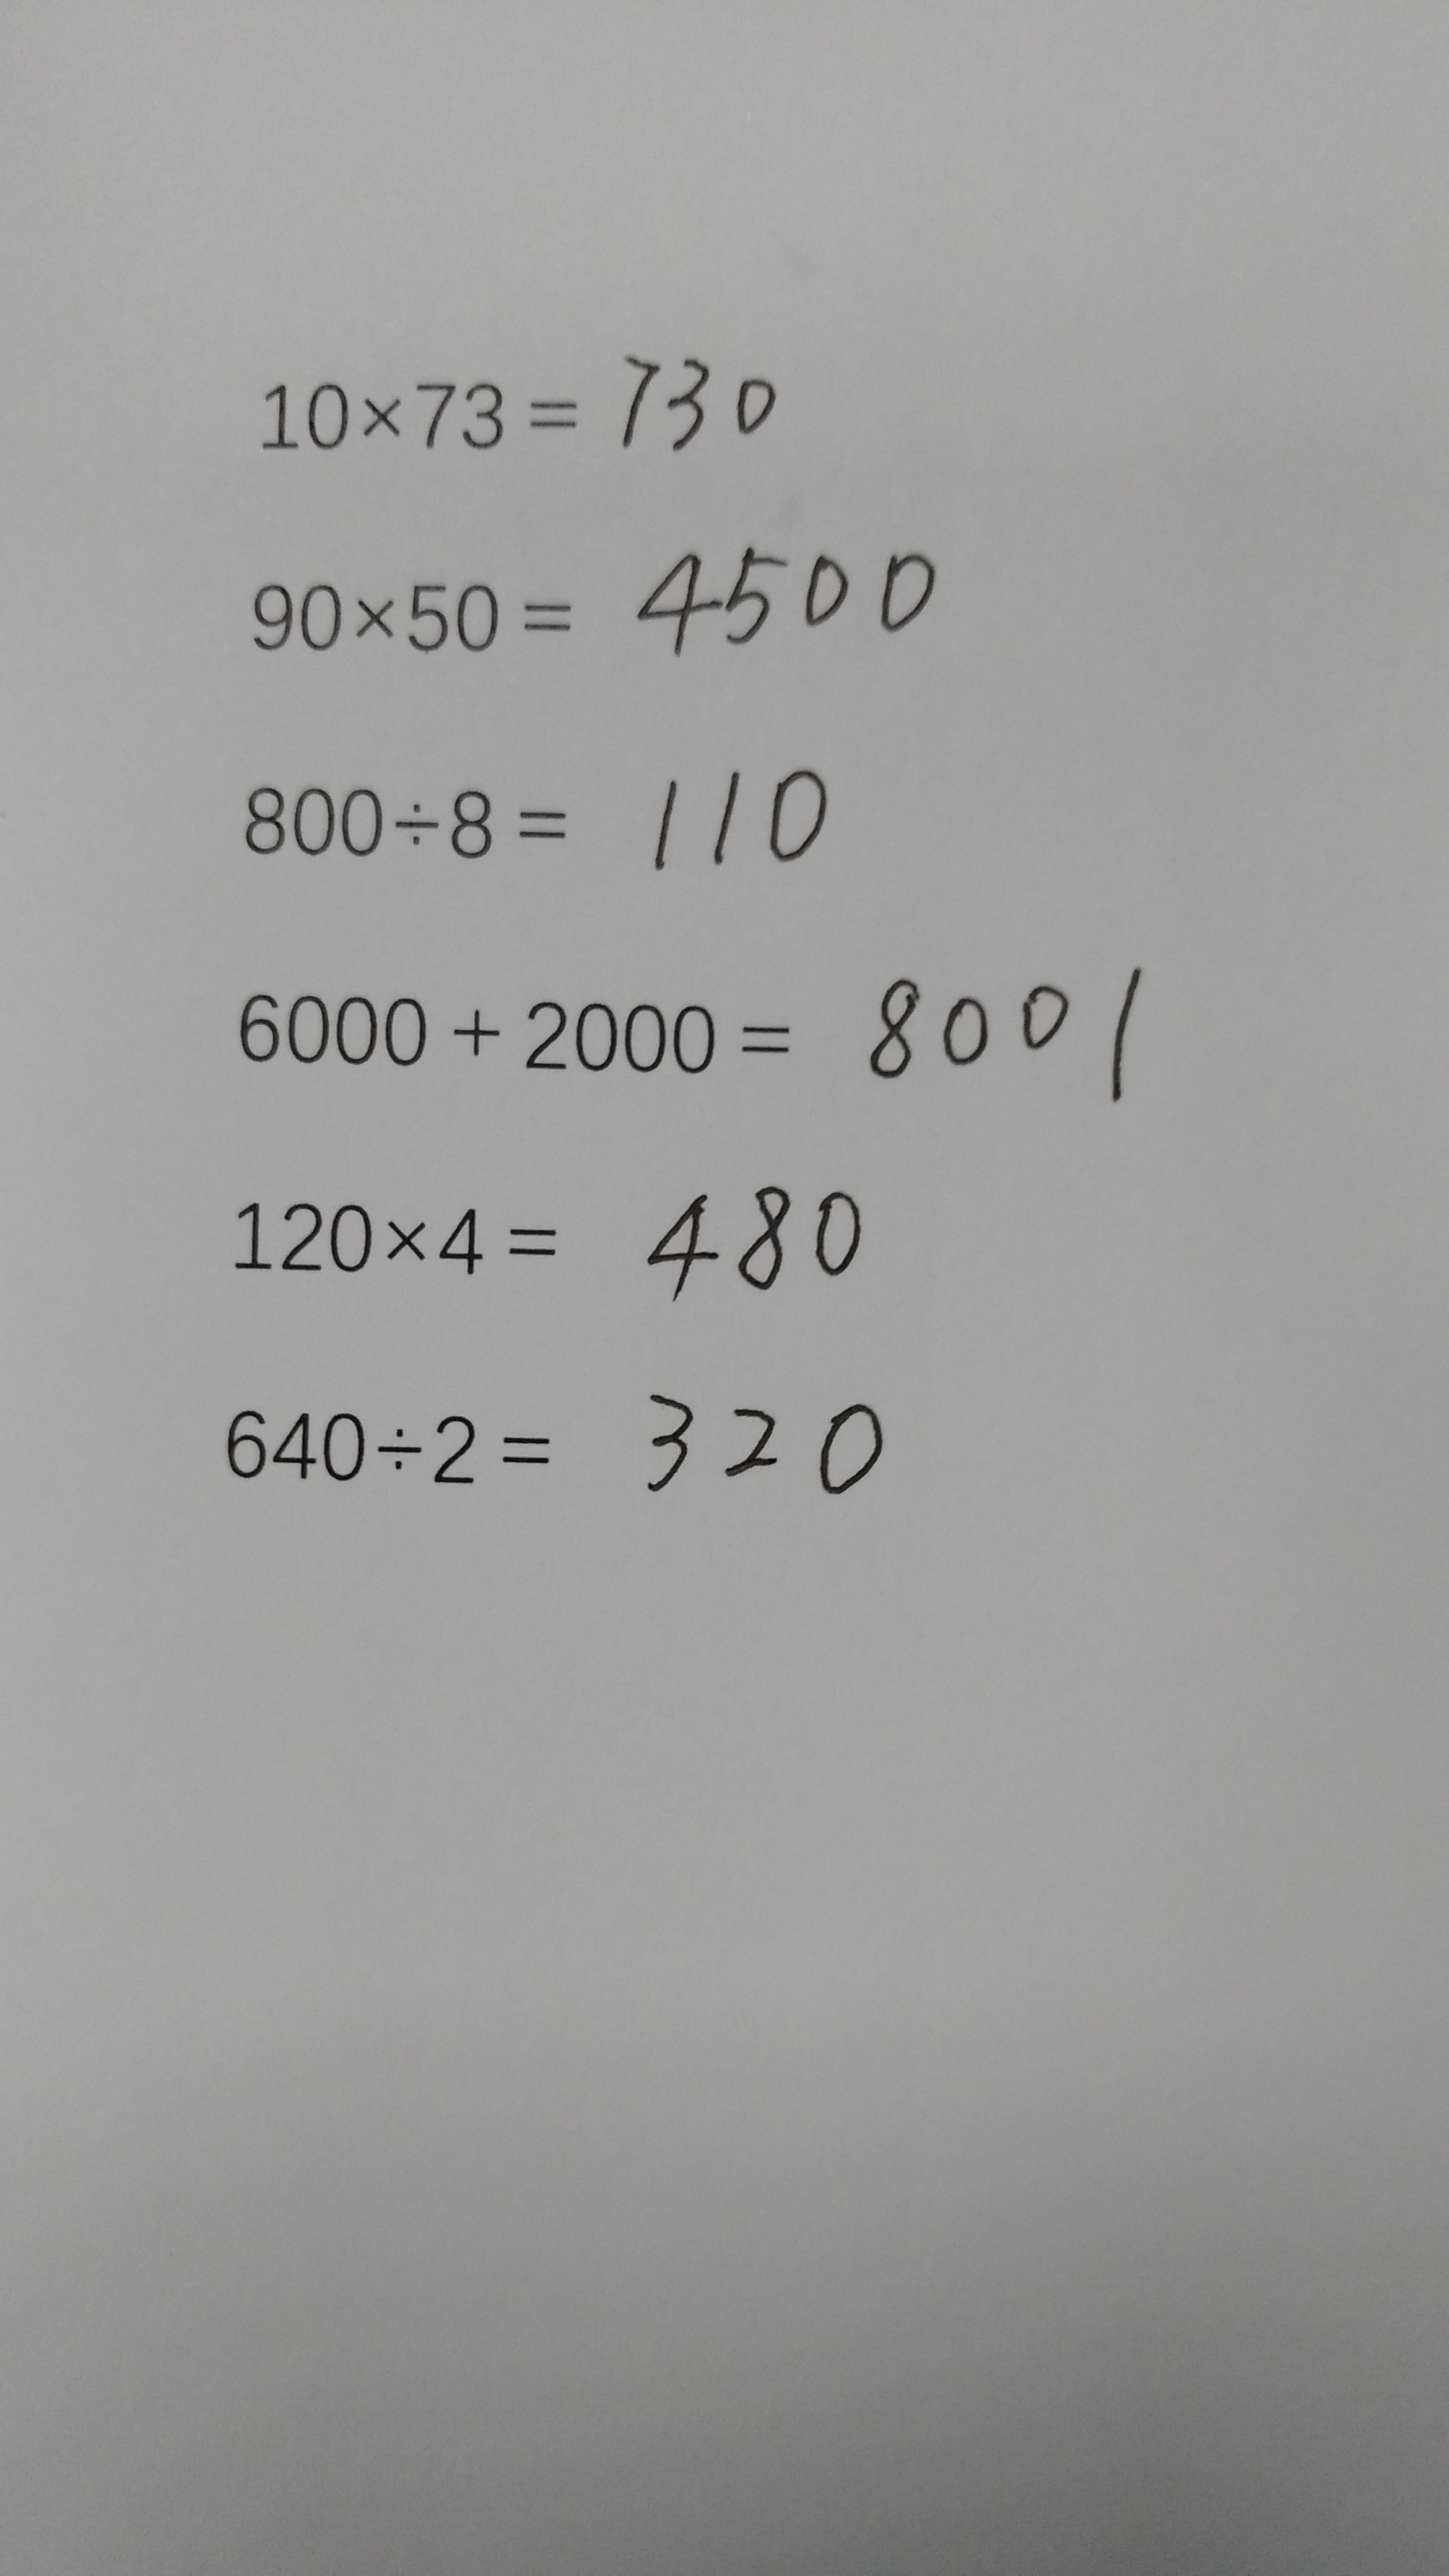 10×73 = 730
90×50 = 4500
800÷8 = 110
6000 + 2000 = 8001
120×4 = 480
640÷2 = 320